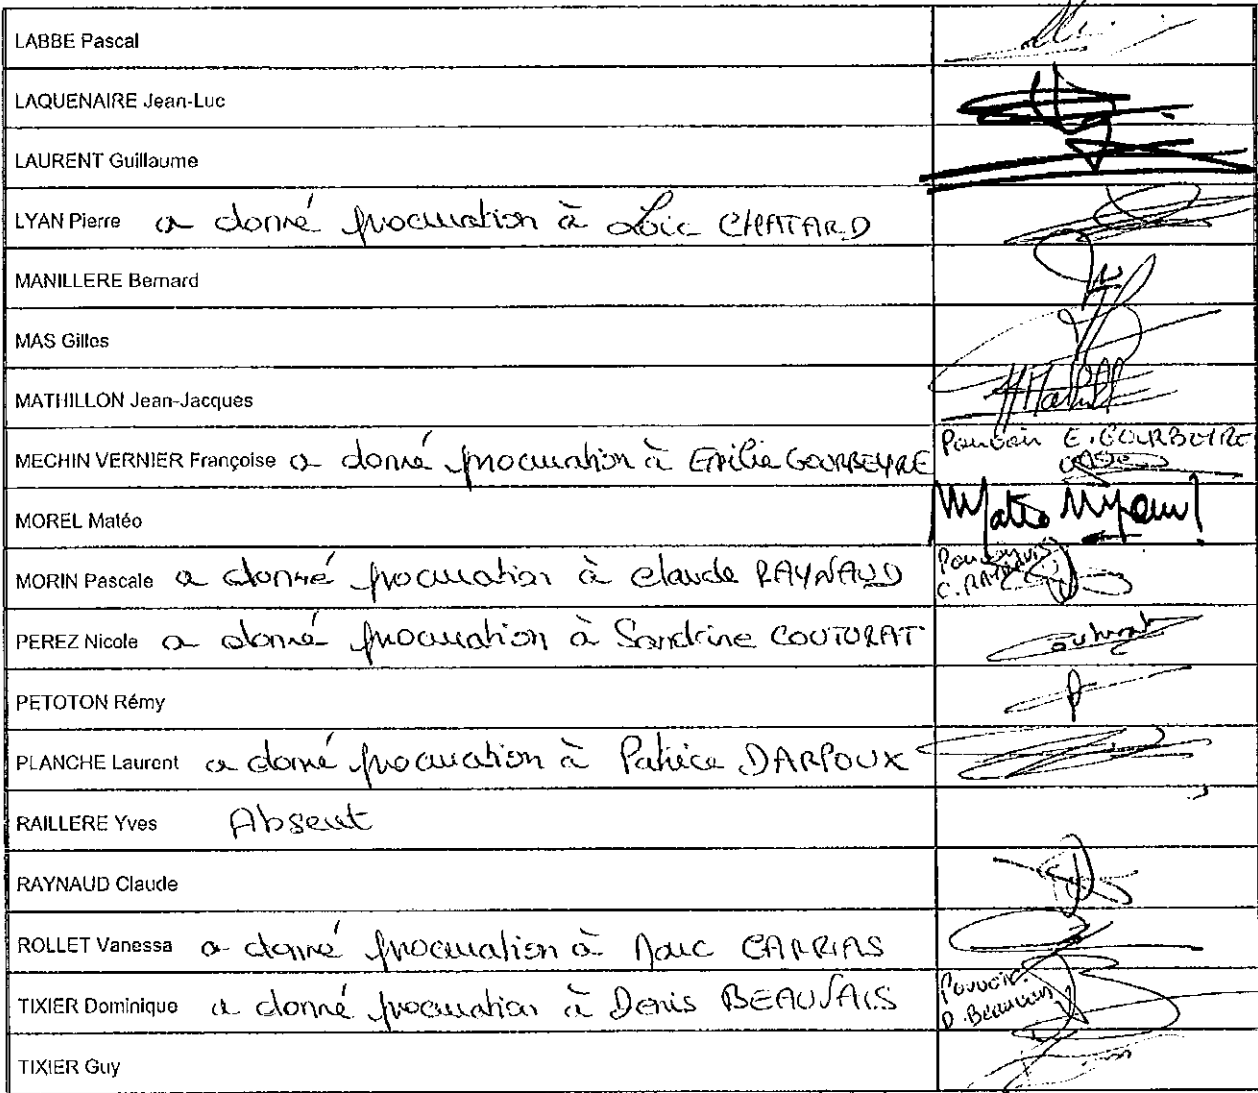 LABBE Pascal
LAQUENAIRE Jean-Luc
LAURENT Guillaume
LYAN Pierre a donné procuration à Loïc CHATARD
MANILLERE Bernard
MAS Gilles
MATHILLON Jean-Jacques
MECHIN VERNIER Françoise a donné procuration à Emilie GOURBEYRE
Pouvoir E. GOURBEYRE
MOREL Matéo
MORIN Pascale a donné procuration à Claude RAYNAUD
Pouvoir
C. RAYNAUD
PEREZ Nicole a donné procuration à Sandrine COUTURAT
PETOTON Rémy
PLANCHE Laurent a donné procuration à Patrice DARPOUX
RAILLERE Yves Absent
RAYNAUD Claude
ROLLET Vanessa a donné procuration à Marc CARRIAS
TIXIER Dominique a donné procuration à Denis BEAUVAIS
Pouvoir
D. Beauvais
TIXIER Guy